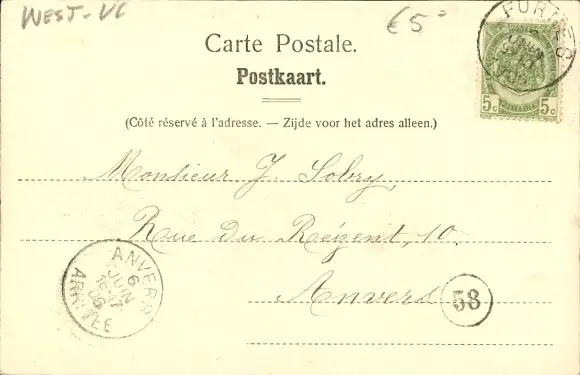 WEST-VL
€5=
FURNES
Carte Postale.
Postkaart.
5c 5c
(Côté réservé à l'adresse. — Zijde voor het adres alleen.)
Monsieur J. Sobry,
Rue du Régent, 10.
Anvers
58
ANVERS
6
JUIN
ARRIVÉE